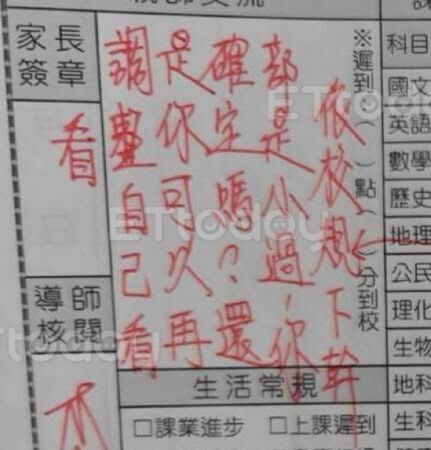 家長
簽章
看
導師
核閱
※遲到:( )點( )分到校
依校規下幹
部是小過,你
確定嗎?還
是你可以再
調整自己看
生活常規
□課業進步 □上課遲到
科目
國文
英語
數學
歷史
地理
公民
理化
生物
地科
生科
ETtoday